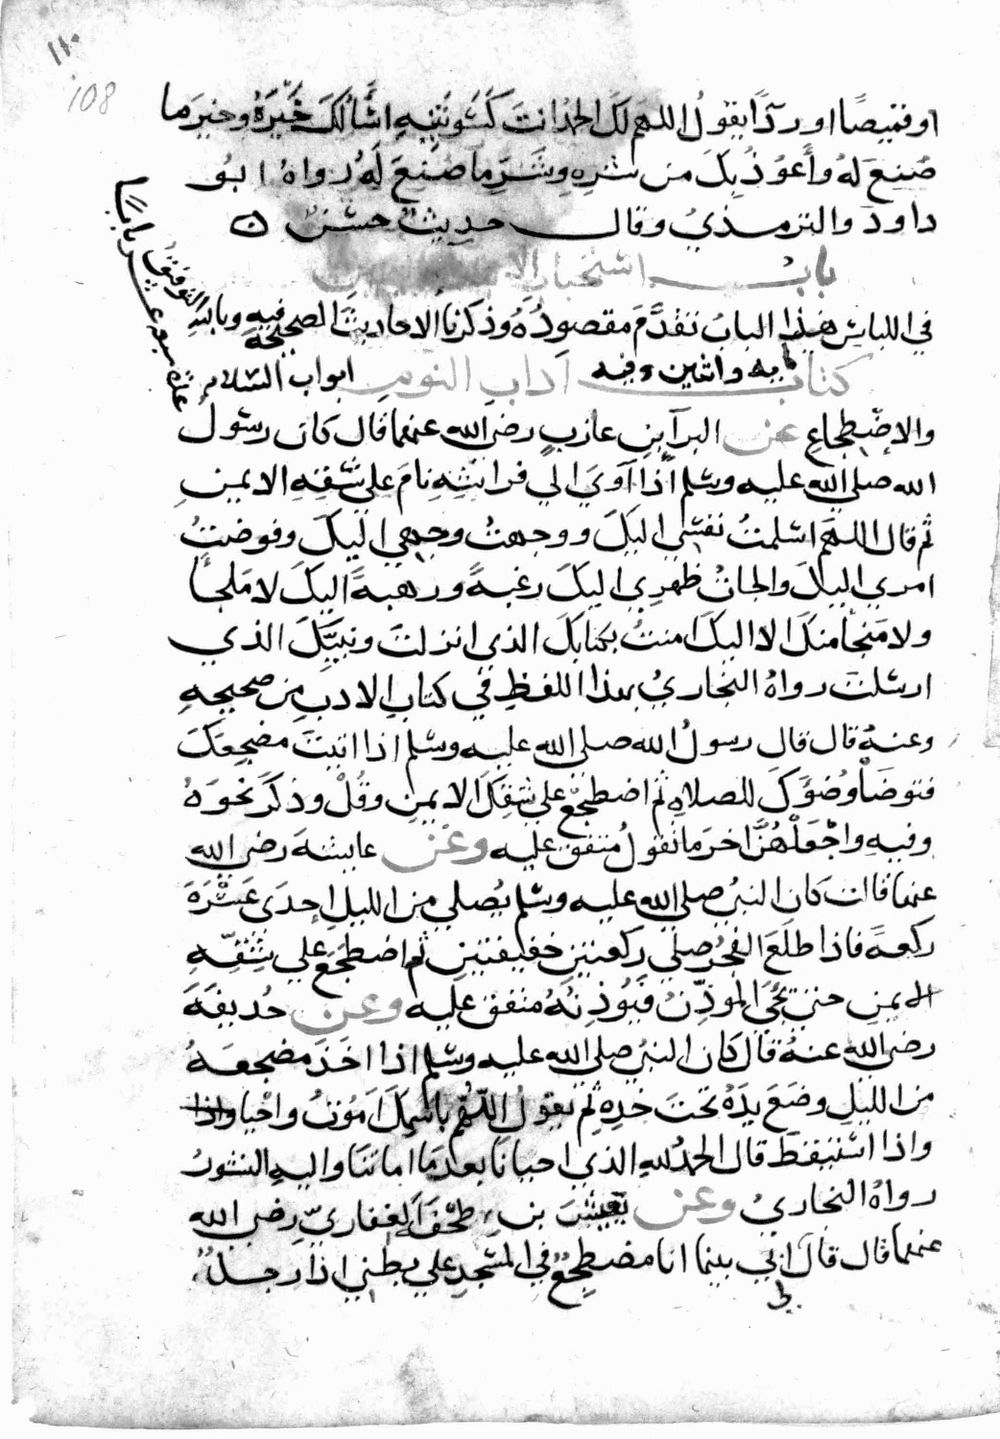 ١١٠
108
اوقميصًا اوردآً يقولُ اللهم لكَ الحمدُ انتَ كَسَوتَنيهِ اسْأَلكَ خَيرَهُ وخيرَ ما
صُنِعَ لهُ وأعوُذُ بِكَ من شرِهِ وشَرِّ ما صُنعَ لهُ رواهُ ابو
داود والترمذيُ وقال حديثٌ حسنٌ
بابُ استحباب الا
في اللباس هذا البابُ تقدَّمَ مقصودُهُ وذكرنا الاحاديثَ الصحيحة فيه وبالله التوفيق
كتابُ آدابِ النومِ
وفيه ابواب السلام
سبعة عشر بابا
والاضطجاع عن البرآ بن عازبٍ رضي الله عنهما قال كان رسول
الله صلي الله عليه وسلم اذا آوَيَ الي فراشِهِ نامَ علي شقهِ الايمنِ
ثم قال اللهم اسلمتُ نفسي اليكَ ووجهتُ وجهي اليكَ وفوضتُ
امري اليكَ والجاتُ ظهرِي اليكَ رغبةً ورهبةً اليكَ لا ملجأ
ولا منجا منكَ الا اليكَ امنتُ بكتابكَ الذي انزلتَ ونبيِّكَ الذي
ارسلتَ رواهُ البخاريُ بهذا اللفظِ في كتابِ الادبِ من صحيحهِ
وعنهُ قال قال رسولُ الله صلي الله عليه وسلم اذا اتيتَ مضجعكَ
فتوضأ وُضوَكَ للصلاةِ ثم اضطجعْ علي شقكَ الايمنِ وقُلْ وذكرَ نحوَهُ
وفيهِ واجْعَلْهُنَّ اخرَ ما تقولُ متفق عليه وعن عايشةَ رضي الله
عنها قالت كان النبيُ صلي الله عليه وسلم يُصلي من الليلِ إحدَى عَشْرَةَ
ركعةً فاذا طلَعَ الفجرُ صلي ركعتينِ خفيفتينِ ثم اضطجعَ علي شِقِّهِ
الايمنِ حتي يَجيَ الموذّنُ فيُوذِنَهُ متفق عليه وعن حُذيفةَ
رضي الله عنهُ قال كان النبيُ صلي الله عليه وسلم اذا اخَذَ مضجعَهُ
من الليلِ وضَعَ يدَهُ تحتَ خدِهِ ثم يقولُ اللّهُم باسْمِكَ اموتُ واحْيا واذا
واذا استيقظَ قال الحمدُ للهِ الذي احيانا بعدَما اماتنا واليهِ النشورُ
رواهُ البخاريُ وعن يعيشَ بن طخفَةَ الغفاريِّ رضي الله
عنهما قال قال ابي بينما انا مضطجعٌ في المسجدِ علي بطني اذا رجلٌ